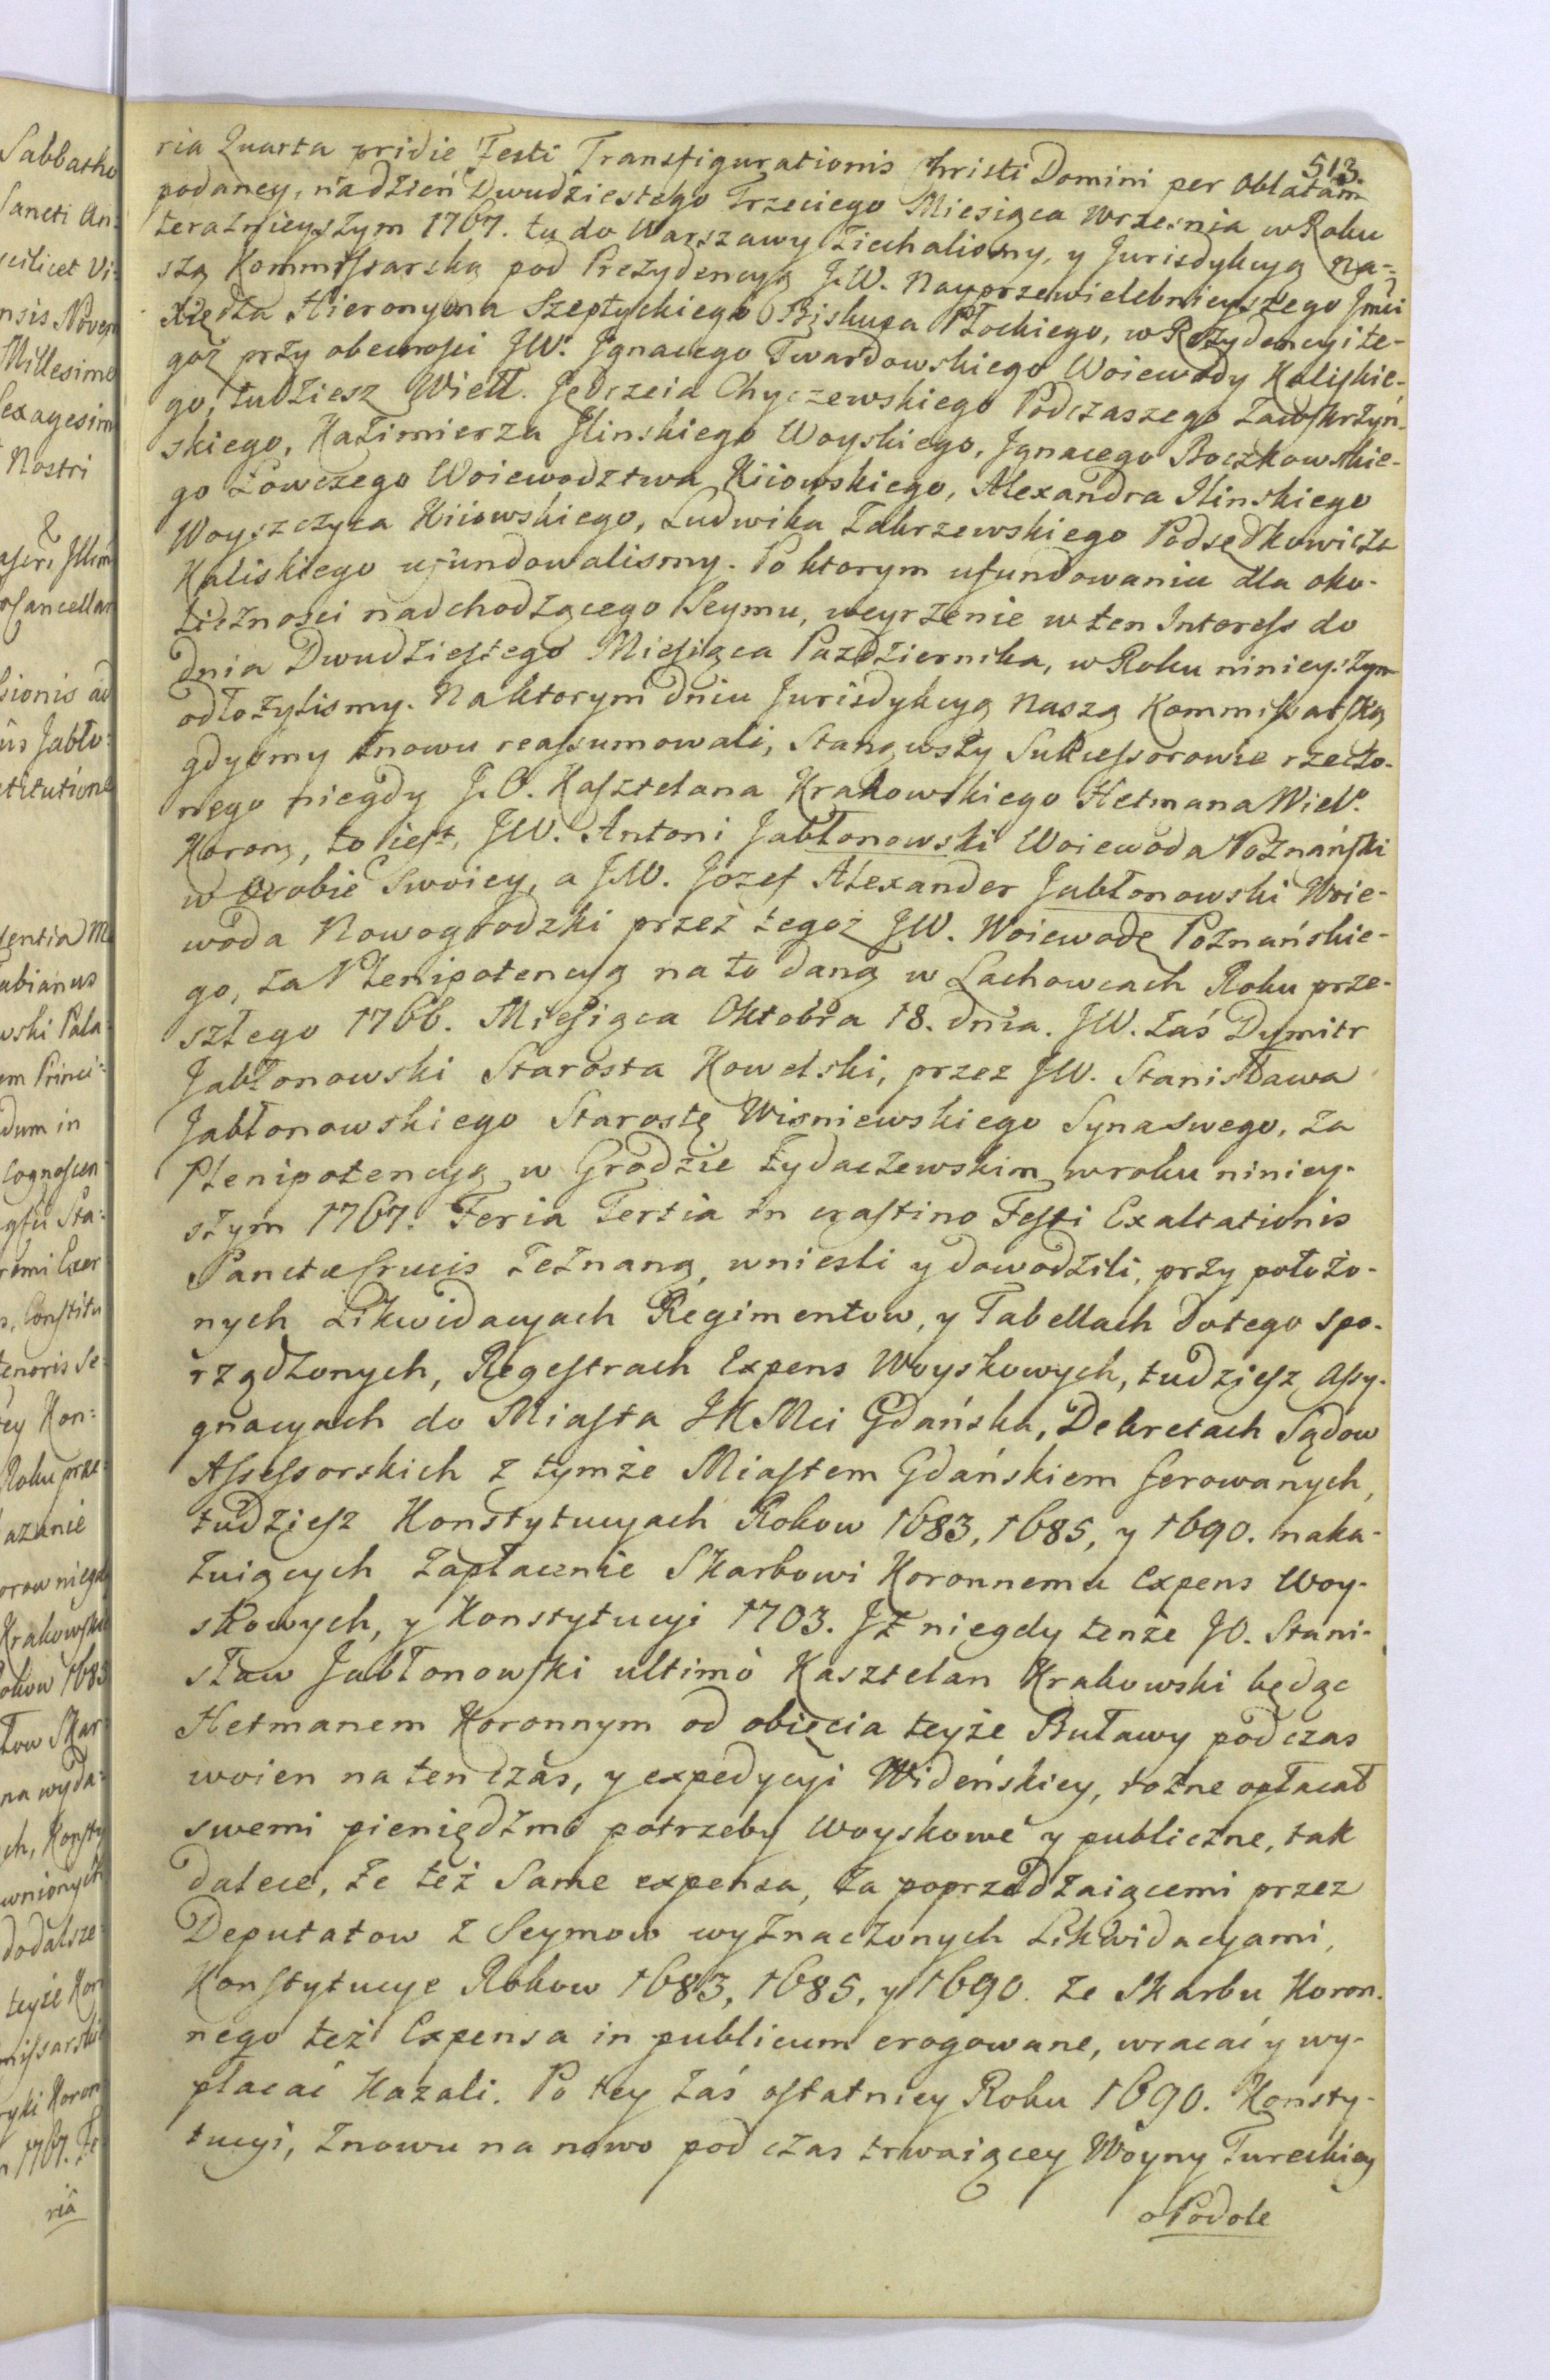 513.
ria Quarta pridie Festi Transfigurationis Christi Domini per Oblatam
podaney, na dzień Dwudziestego Trzeciego Miesiąca Wrzesnia w Roku
teraznieyszym 1767. tu do Warszawy ziechalismy, y Jurisdykcyą na-
szą Kommissarską pod Prezydencyą J.W. Nayprzewielebnieyszego Jmci
Xiędza Hieronyma Szeptyckiego Biskupa Płockiego, w Rezydencyi te-
goż przy obecnosci JW. Jgnacego Twardowskiego Woiewody Kaliskie-
go, tudziesz Wiell. Jędrzeia Chyczewskiego Podczaszego Zawskrzyń-
skiego, Kazimierza Jlinskiego Woyskiego, Jgnacego Boczkowskie-
go Łowczego Woiewodztwa Kiiowskiego, Alexandra Jlinskiego
Woyszczyca Kiiowskiego, Ludwika Zakrzewskiego Podsędkowicza
Kaliskiego ufundowalismy. Po ktorym ufundowaniu dla oko-
licznosci nadchodzącego Seymu, weyrzenie w ten Interess do
dnia Dwudziestego Miesiąca Pazdziernika, w Roku ninieyszym
odłozylismy. Na ktorym dniu Jurisdykcyą naszą Kommissarską
gdysmy znowu reassumowali, Stanąwszy Sukcessorowie rzeczo-
nego niegdy J.O. Kasztelana Krakowskiego Hetmana Wielo
Korong, to iest, JW. Antoni Jabłonowski Woiewoda Poznański
w Osobie Swoiey, a J.W. Jozef Alexander Jabłonowski Woie-
woda Nowogrodzki przez tegoż JW. Woiewodę Poznańskie-
go, za Plenipotencyą na to daną w Lachowcach Roku prze-
szłego 1766. Miesiąca Oktobra 18. dnia. JW. zaś Dymitr
Jabłonowski Starosta Kowelski, przez JW. Stanisława
Jabłonowskiego Starostę Wisniewskiego Syna swego, za
Plenipotencyą w Grodzie Zydaczewskim w roku niniey-
szym 1767. Feria Tertia in crastino Festi Exaltationis
Sanctæ Crucis zeznaną, wniesli y dowodzili, przy położo-
nych Likwidacyach Regimentow, y Tabellach do tego spo-
rządzonych, Regestrach Expens Woyskowych, tudziesz Assy-
gnacyach do Miasta JKMci Gdańska, Dekretach Sądow
Assessorskich z tymże Miastem Gdańskiem ferowanych,
tudziesz Konstytucyach Rokow 1683, 1685, y 1690. naka-
zuiących zapłacenie Skarbowi Koronnemu expens Woy-
skowych, y Konstytucyi 1703. Jż niegdy tenże JO. Stani-
sław Jabłonowski ultimò Kasztelan Krakowski będąc
Hetmanem Koronnym od obięcia teyże Buławy podczas
woien na ten czas, y expedycyi Wideńskiey, rożne opłacał
swemi pieniędzmi potrzeby woyskowe y publiczne, tak
dalece, że też same expensa, za poprzedzaiącemi przez
Deputatow z Seymow wyznaczonych Likwidacyami,
Konstytucye Rokow 1683, 1685, y 1690. ze Skarbu Koron-
nego też Expensa in publicum erogowane, wracać y wy-
płacać Kazali. Po tey zaś ostatniey Roku 1690. Konsty-
tucyi, znowu na nowo pod czas trwaiącey Woyny Tureckiey
o Podole